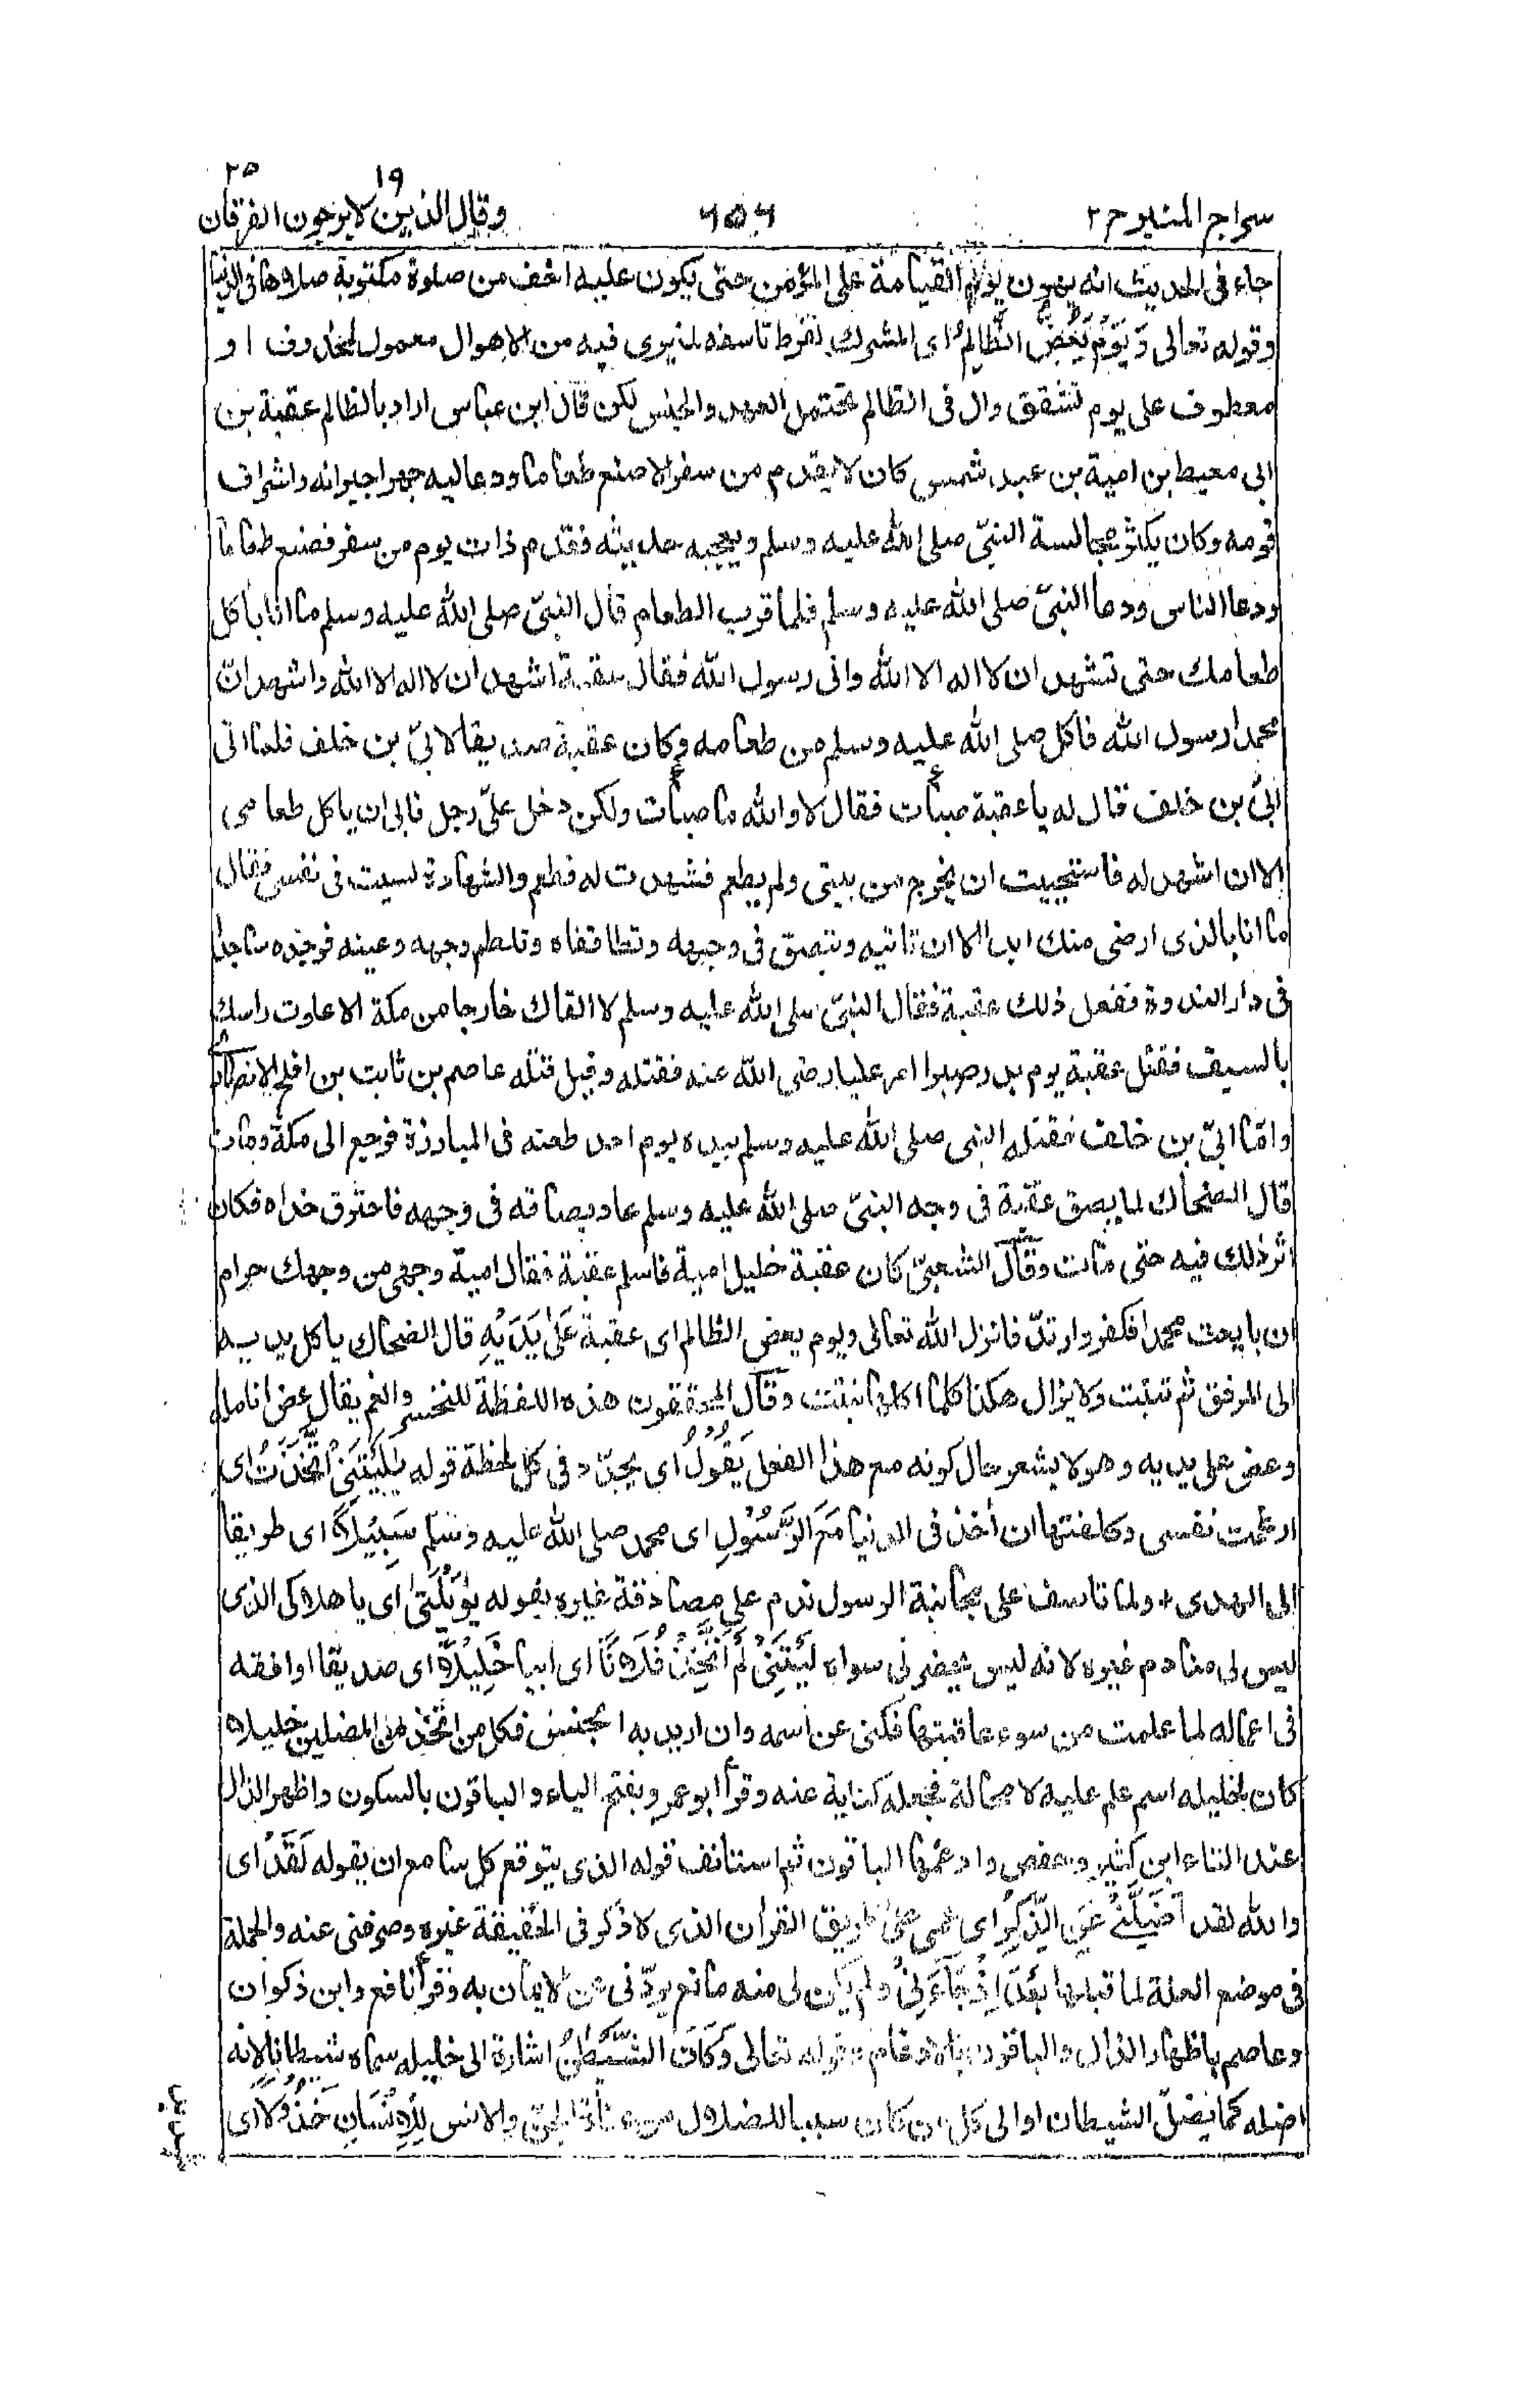 سراج المنير ج ٢ ٦٥٦ ١٩ وقال الذين لا يرجون الفرقان ٢٥
جاء فى الحديث انه يهون يوم القيامة على المؤمن حتى يكون عليه اخف من صلوة مكتوبة صلاها فى الدنيا
وقوله تعالى وَيَوْمَ يَعَضُّ الظَّالِمُ اى المشرك لفرط تاسفه لما يرى فيه من الاهوال معمول لمحذوف او
معطوف على يوم تشقق وال فى الظالم تحتمل العهد والجنس لكن قال ابن عباس اراد بالظالم عقبة بن
ابى معيط بن امية بن عبد شمس كان لا يقدم من سفر الا صنع طعاما ودعا اليه جهرا جيرانه واشراف
قومه وكان يكثر مجالسة النبىّ صلى الله عليه وسلم ويعجبه حديثه فقدم ذات يوم من سفر فصنع طعاما
ودعا الناس ودعا النبىّ صلى الله عليه وسلم فلما قرب الطعام قال النبىّ صلى الله عليه وسلم ما انا باٰكل
طعامك حتى تشهد ان لا اله الا الله وانى رسول الله فقال عقبة اشهد ان لا اله الا الله واشهد انّ
محمدا رسول الله فاكل صلى الله عليه وسلم من طعامه وكان عقبة صديقا لابىّ بن خلف فلما اتى
ابىّ بن خلف قال له يا عقبة صبأت فقال لا والله ما صبأت ولكن دخل علىّ رجل فابى ان ياكل طعامى
الا ان اشهد له فاستحييت ان يخرج من بيتى ولم يطعم فشهدت له فطعم والشهادة ليست فى نفسى فقال
ما انا بالذى ارضى منك ابدا الا ان تاتيه وتبصق فى وجهه وتطا قفاه وتلطم وجهه وعينه فوجده ساجدا
فى دار الندوة ففعل ذلك عقبة فقال النبىّ صلى الله عليه وسلم لا القاك خارجا من مكة الا علوت راسك
بالسيف فقتل عقبة يوم بدر صبرا امر عليا رضى الله عنه فقتله وقيل قتله عاصم بن ثابت بن افلح الانصارى
وامّا ابىّ بن خلف فقتله النبى صلى الله عليه وسلم بيده يوم احد طعنه فى المبارزة فرجع الى مكة ومات
قال الضحاك لما بصق عقبة فى وجه النبىّ صلى الله عليه وسلم عاد بصاقه فى وجهه فاحترق خداه فكان
اثر ذلك فيه حتى مات وقال الشعبىّ كان عقبة خليل امية فاسلم عقبة فقال امية وجهى من وجهك حرام
ان بايعت محمدا فكفر وارتدّ فانزل الله تعالى ويوم يعض الظالم اى عقبة عَلٰى يَدَيْهِ قال الضحاك ياكل يديه
الى المرفق ثم تنبت ولا يزال هكذا كلما اكلها نبتت وقال المحققون هذه اللفظة للتحسر والغم يقال عض انامله
وعض على يديه وهو لا يشعر حال كونه مع هذا الفعل يَقُولُ اى يجدّد فى كل لحظة قوله يٰلَيْتَنِى اتَّخَذْتُ اى
ارغمت نفسى وكلفتها ان اٰخذ فى الدنيا مَعَ الرَّسُوْلِ اى محمد صلى الله عليه وسلم سَبِيْلًا اى طريقا
الى الهدى + ولما تاسف على مجانبة الرسول ندم على مصادقة غيره بقوله يٰوَيْلَتٰى اى يا هلاكى الذى
ليس لى منادم غيره لانه ليس يحضرنى سواه لَيْتَنِىْ لَمْ اَتَّخِذْ فُلَانًا اى ابيا خَلِيْلًا اى صديقا اوافقه
فى اعماله لما علمت من سوء عاقبتها فكنى عن اسمه وان اريد به الجنس فكل من اتخذ من المضلين خليلا
كان لخليله اسم علم عليه لا محالة فجعله كناية عنه وقرأ ابو عمرو بفتح الياء والباقون بالسكون واظهر الذال
عند التاء ابن كثير وحفص وادغمها الباقون ثم استانف قوله الذى يتوقع كل سامع ان يقوله لَقَدْ اى
والله لقد اَضَلَّنِىْ عَنِ الذِّكْرِ اى عمى على طريق القراٰن الذى لا ذكر فى الحقيقة غيره وصرفنى عنه والجملة
فى موضع العلة لما قبلها بَعْدَ اِذْ جَآءَنِىْ ولم يكن لى منه مانع يردّنى عن الايمان به وقرأ نافع وابن ذكوان
وعاصم باظهار الذال والباقون بالادغام وقوله تعالى وَكَانَ الشَّيْطٰنُ اشارة الى خليله سماه شيطانا لانه
اضله كما يضلّ الشيطان او الى كل من كان سببا للضلال من عتاة الجن والانس لِلْاِنْسَانِ خَذُوْلًا اى